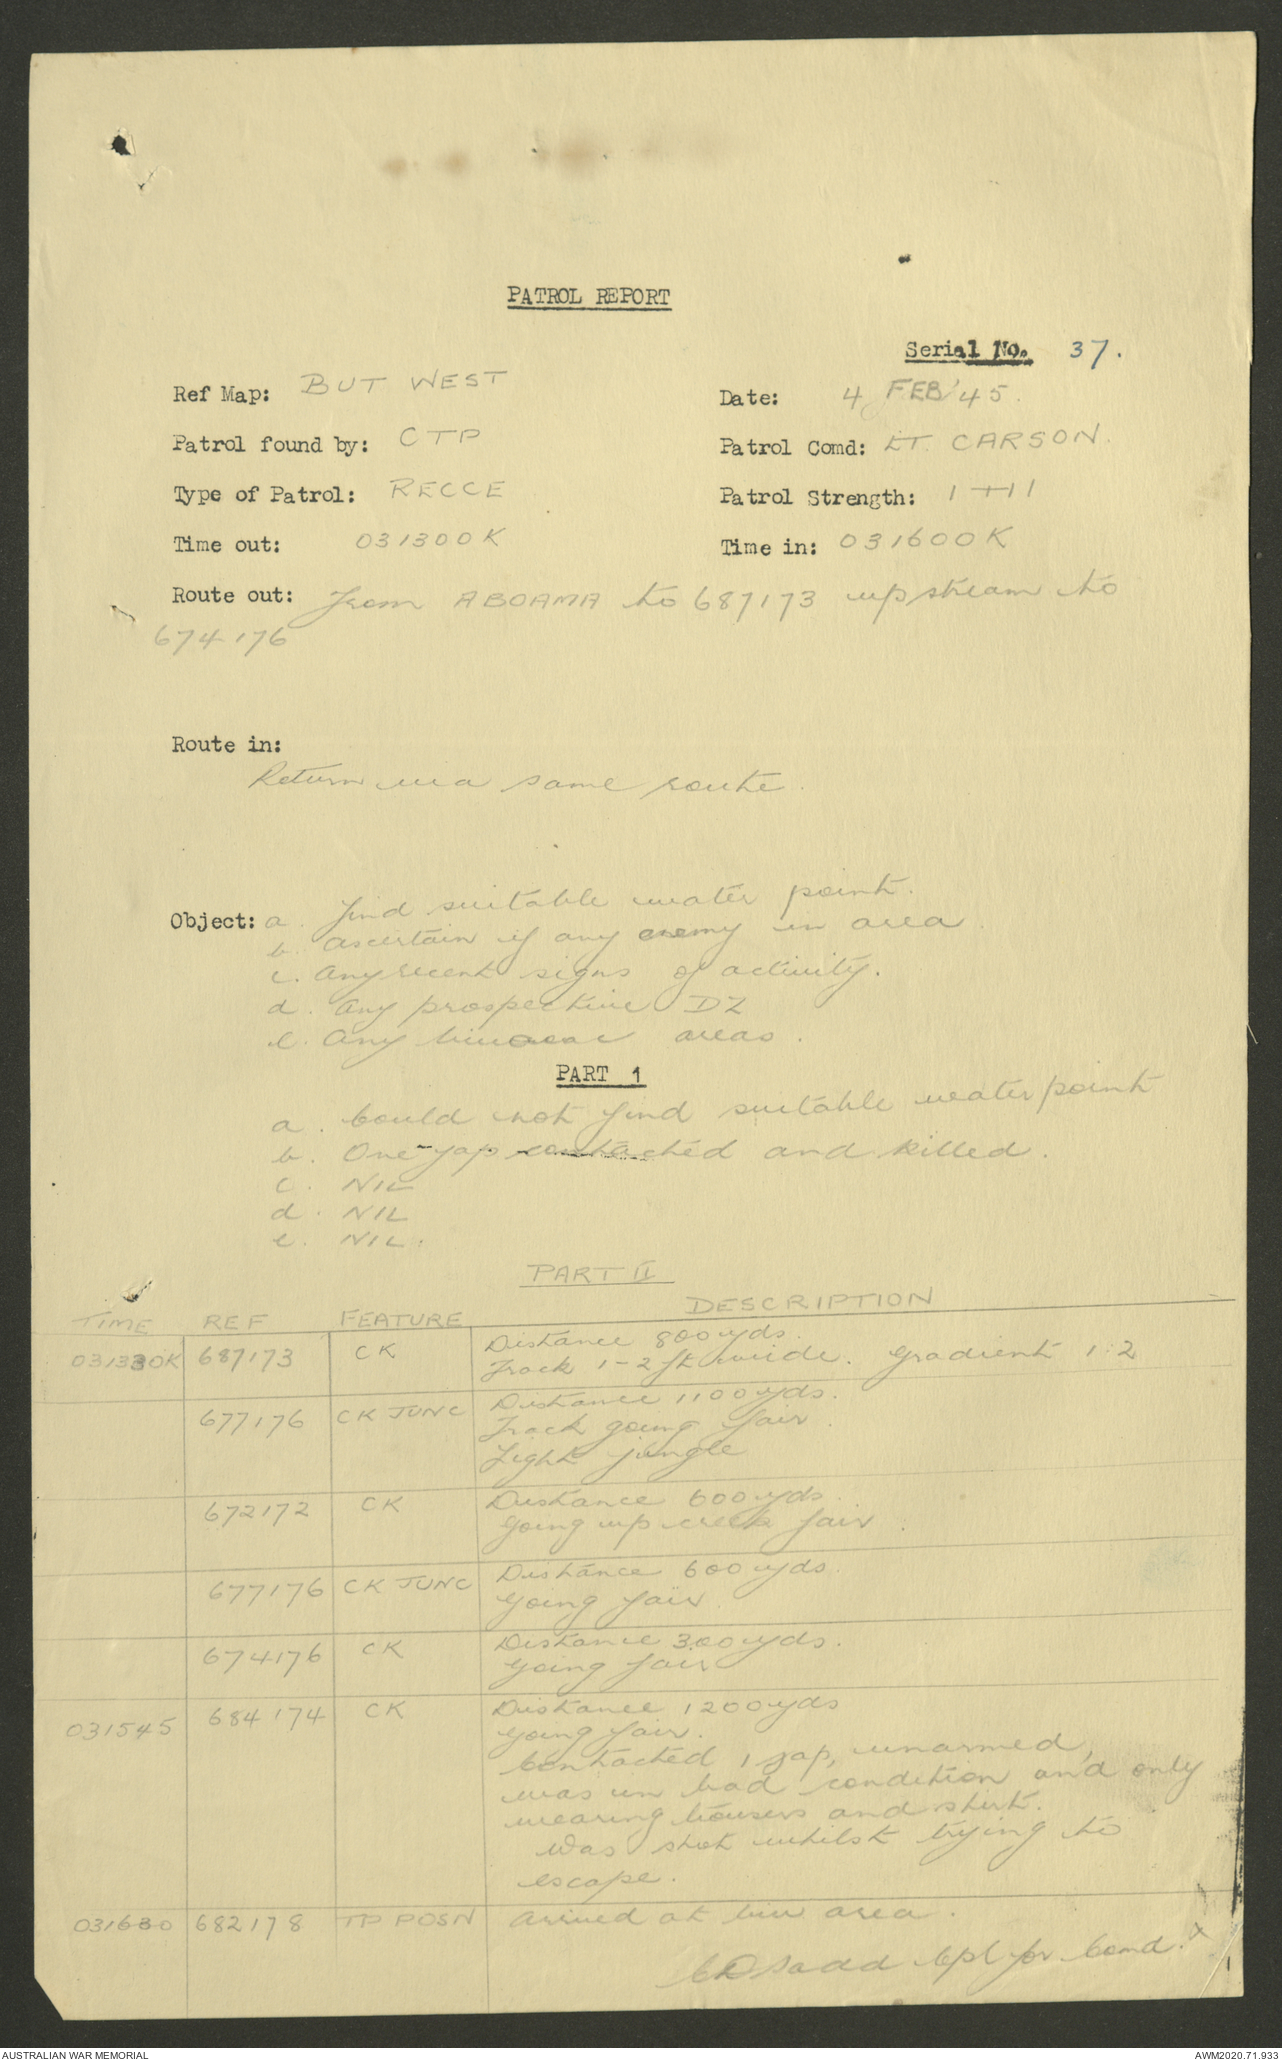 PATROL REPORT
Serial No. 37.
Ref Map: BUT WEST
Date: 4 FEB '45.
Patrol found by: C TP
Patrol Comd: LT. CARSON.
Type of Patrol: RECCE
Patrol Strength: 1 + 11
Time out: 031300K
Time in: 031600K
Route out: From ABOAMA to 687173 upstream to
674176
Route in:
Return via same route.
Object: a. find suitable water point.
b. ascertain if any enemy in area.
c. Any recent signs of activity.
d. Any prospective DZ
e. Any bivouac areas.
PART 1
a. Could not find suitable water point
b. One jap contacted and killed.
c. NIL
d. NIL
e. NIL.
PART II
TIME REF FEATURE DESCRIPTION
031330K 687173 CK Distance 800 yds.
Track 1-2 ft wide. Gradient 1:2
677176 CK JUNC Distance 1100 yds.
Track going fair.
Light jungle
672172 CK Distance 600 yds.
Going up creek fair.
677176 CK JUNC Distance 600 yds.
Going fair.
674176 CK Distance 300 yds.
Going fair
031545 684174 CK Distance 1200 yds
Going fair.
Contacted 1 jap, unarmed,
was in bad condition and only
wearing trousers and shirt.
Was shot whilst trying to
escape.
031630 682178 TP POSN Arrived at biv area.
Cpl for Comd.
AUSTRALIAN WAR MEMORIAL
AWM2020.71.933